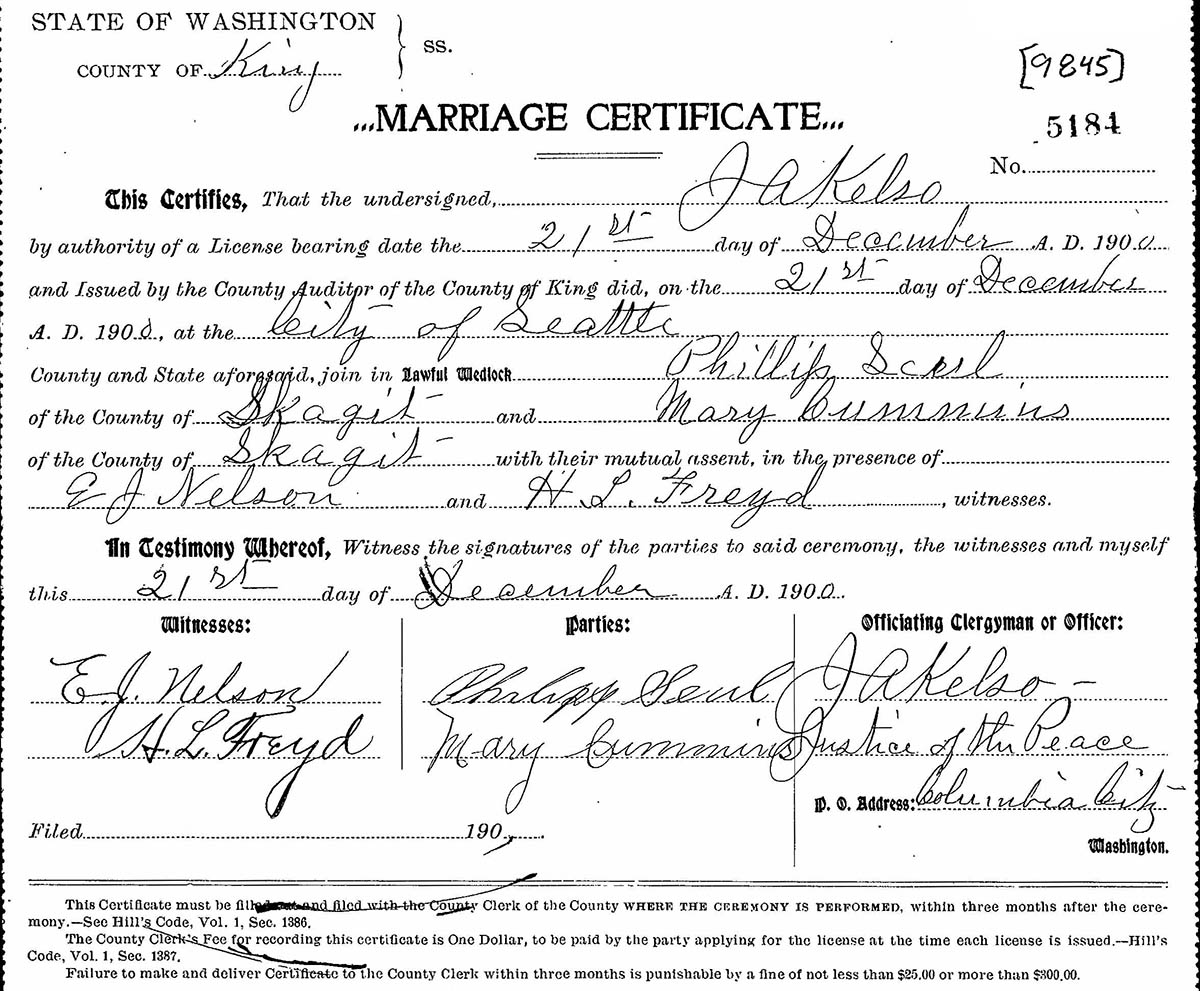 STATE OF WASHINGTON } SS.
COUNTY OF King
[9845]
...MARRIAGE CERTIFICATE...
5184
No.
This Certifies, That the undersigned, J A Kelso
by authority of a License bearing date the 21st day of December A. D. 1900
and Issued by the County Auditor of the County of King did, on the 21st day of December
A. D. 1900, at the City of Seattle
County and State aforesaid, join in Lawful Wedlock Phillip
of the County of Skagit and Mary Cummins
of the County of Skagit with their mutual assent, in the presence of
E J Nelson and H. L. Freyd, witnesses.
In Testimony Whereof, Witness the signatures of the parties to said ceremony, the witnesses and myself
this 21st day of December A. D. 1900.
Witnesses: Parties: Officiating Clergyman or Officer:
E. J. Nelson Philipp J A Kelso
H. L. Freyd Mary Cummins Justice of the Peace
P. O. Address: Columbia City
Filed 190 .
Washington.
This Certificate must be filed out and filed with the County Clerk of the County WHERE THE CEREMONY IS PERFORMED, within three months after the cere-
mony.—See Hill's Code, Vol. 1, Sec. 1386.
The County Clerk's Fee for recording this certificate is One Dollar, to be paid by the party applying for the license at the time each license is issued.—Hill's
Code, Vol. 1, Sec. 1387.
Failure to make and deliver Certificate to the County Clerk within three months is punishable by a fine of not less than $25.00 or more than $300.00.